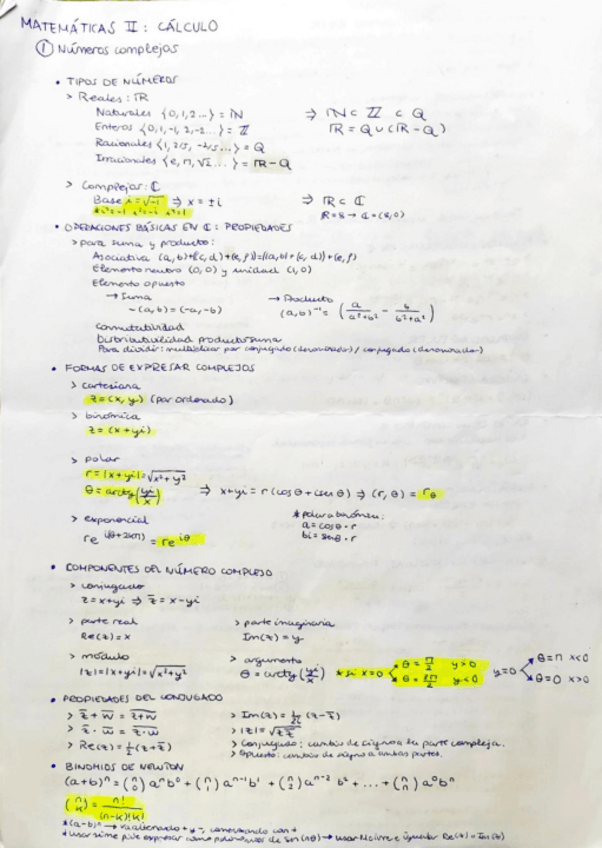 MATEMÁTICAS II: CÁLCULO
① Números complejos
• TIPOS DE NÚMEROS
> Reales: ℝ
Naturales {0,1,2...} = ℕ ⇒ ℕ ⊂ ℤ ⊂ ℚ
Enteros {0,1,-1,2,-2...} = ℤ ℝ = ℚ ∪ (ℝ - ℚ)
Racionales {1, 2/5, -2/5...} = ℚ
Irracionales {e, π, √2...} = ℝ - ℚ
> Complejos: ℂ
Base i = √-1 ⇒ x = ±i ⇒ ℝ ⊂ ℂ
* i²=-1 i³=-i i⁴=1
• OPERACIONES BÁSICAS EN ℂ: PROPIEDADES
> para suma y producto:
Asociativa (a,b)+((c,d)+(e,f))=((a,b)+(c,d))+(e,f)
Elemento neutro (0,0) y unidad (1,0)
Elemento opuesto
→ Suma → Producto
-(a,b) = (-a,-b) (a,b)⁻¹ = (a/(a²+b²) - b/(b²+a²))
conmutatividad
Distributividad producto suma
Para dividir: multiplicar por conjugado (denominador) / conjugado (denominador)
• FORMAS DE EXPRESAR COMPLEJOS
> cartesiana
z = (x, y) (par ordenado)
> binómica
z = (x+yi)
> polar
r = |x+yi| = √x²+y²
θ = arctg(yi/x) ⇒ x+yi = r(cosθ + i senθ) ⇒ (r, θ) = r_θ
> exponencial * polar a binómica:
re^i(θ+2kπ) = re^iθ a = cosθ · r
bi = senθ · r
• COMPONENTES DEL NÚMERO COMPLEJO
> conjugado
z = x+yi ⇒ z̄ = x-yi
> parte real > parte imaginaria
Re(z) = x Im(z) = y
> módulo > argumento
|z| = |x+yi| = √x²+y² θ = arctg(y/x) * si x=0 θ = π/2 y>0 y=0 θ=π x<0
θ = 3π/2 y<0 θ=0 x>0
• PROPIEDADES DEL CONJUGADO
> z̄ + w̄ = z+w > Im(z) = 1/2i (z-z̄)
> z̄ · w̄ = z·w > |z| = √z z̄
> Re(z) = 1/2 (z+z̄) > Conjugado: cambio de signo a la parte compleja.
> Opuesto: cambio de signo a ambas partes.
• BINOMIOS DE NEWTON
(a+b)ⁿ = (n 0) aⁿb⁰ + (n 1) aⁿ⁻¹b¹ + (n 2) aⁿ⁻² b² + ... + (n n) a⁰bⁿ
(n k) = n! / (n-k)!k!
* (a-b)ⁿ → va alternando + y -, comenzando con +